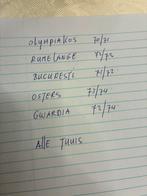 OLYMPIAKOS 70/71
RUMELANGE 72/73
BUCURESTI 71/72
OSTERS 73/74
GWARDIA 73/74
ALLE THUIS